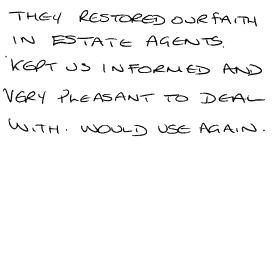 THEY RESTORED OUR FAITH
IN ESTATE AGENTS.
KEPT US INFORMED AND
VERY PLEASANT TO DEAL
WITH. WOULD USE AGAIN.